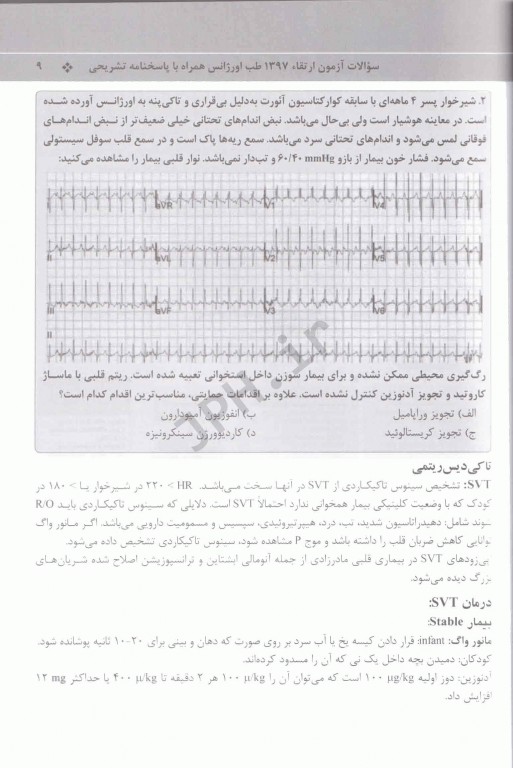 سؤالات آزمون ارتقاء ۱۳۹۷ طب اورژانس همراه با پاسخنامه تشریحی ❖ ۹
۲. شیرخوار پسر ۴ ماهه‌ای با سابقه کوارکتاسیون آئورت به‌دلیل بی‌قراری و تاکی‌پنه به اورژانس آورده شده
است. در معاینه هوشیار است ولی بی‌حال می‌باشد. نبض اندام‌های تحتانی خیلی ضعیف‌تر از نبض اندام‌های
فوقانی لمس می‌شود و اندام‌های تحتانی سرد می‌باشد. سمع ریه‌ها پاک است و در سمع قلب سوفل سیستولی
سمع می‌شود. فشار خون بیمار از بازو ۶۰/۴۰ mmHg و تب‌دار نمی‌باشد. نوار قلبی بیمار را مشاهده می‌کنید:
aVR V1 V4
II aVL V2 V5
III aVF V3 V6
II
JPH.ir
رگ‌گیری محیطی ممکن نشده و برای بیمار سوزن داخل استخوانی تعبیه شده است. ریتم قلبی با ماساژ
کاروتید و تجویز آدنوزین کنترل نشده است. علاوه بر اقدامات حمایتی، مناسب‌ترین اقدام کدام است؟
الف) تجویز وراپامیل ب) انفوزیون آمیودارون
ج) تجویز کریستالوئید د) کاردیوورژن سینکرونیزه
تاکی‌دیس‌ریتمی
SVT: تشخیص سینوس تاکیکاردی از SVT در آنها سخت می‌باشد. HR > ۲۲۰ در شیرخوار یا > ۱۸۰ در
کودک که با وضعیت کلینیکی بیمار همخوانی ندارد احتمالاً SVT است. دلایلی که سینوس تاکیکاردی باید R/O
شوند شامل: دهیدراتاسیون شدید، تب، درد، هیپرتیروئیدی، سپسیس و مسمومیت دارویی می‌باشد. اگر مانور واگ
توانایی کاهش ضربان قلب را داشته باشد و موج P مشاهده شود، سینوس تاکیکاردی تشخیص داده می‌شود.
اپی‌زودهای SVT در بیماری قلبی مادرزادی از جمله آنومالی ابشتاین و ترانسپوزیشن اصلاح شده شریان‌های
بزرگ دیده می‌شود.
درمان SVT:
بیمار Stable:
مانور واگ: infant: قرار دادن کیسه یخ یا آب سرد بر روی صورت که دهان و بینی برای ۲۰-۱۰ ثانیه پوشانده شود.
کودکان: دمیدن بچه داخل یک نی که آن را مسدود کرده‌اند.
آدنوزین: دوز اولیه ۱۰۰ μg/kg است که می‌توان آن را ۱۰۰ μ/kg هر ۲ دقیقه تا ۴۰۰ μ/kg یا حداکثر ۱۲ mg
افزایش داد.